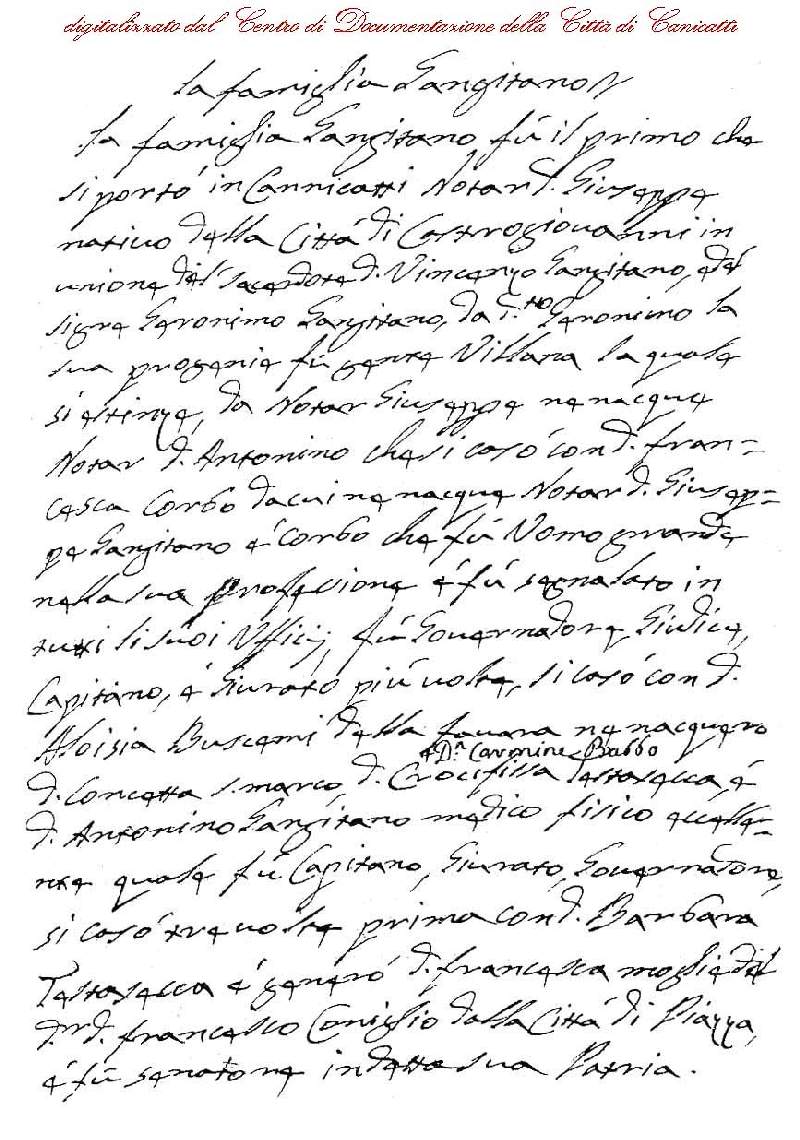 digitalizzato dal Centro di Documentazione della Città di Canicattì
La famiglia Gangitano
La famiglia Gangitano fù il primo che
si portò in Cannicatti Notar D. Giuseppe
nativo della Città di Castrogiovanni in
unione del sacerdote D. Vincenzo Gangitano, e del
sigre Geronimo Gangitano, da d.tto Geronimo la
sua progenie fù gente Villana la quale
si estinze, da Notar Giuseppe ne nacque
Notar D. Antonino che si casò con D. Fran=
cesca Corbo da cui ne nacque Notar D. Giusep=
pe Gangitano è Corbo che fù Uomo grande
nella sua Professione è fù segnalato in
tutti li suoi Ufficij, fù Governadore Giudice,
Capitano, è Giurato più volte, si casò con D.
Aloisia Buscemi della favara ne nacquero
e D.a Carmine Babbo
D. Concetta S. Marco, D. Crocifissa Testasecca, è
D. Antonino Gangitano medico fisico eccelle=
nte quale fù Capitano, Giurato, Governadore,
si casò tre volte prima con D. Barbara
Testasecca è generò D. Francesca moglie del
D.r D. Francesco Coniglio della Città di Piazza,
è fù senatore in detta sua Patria.